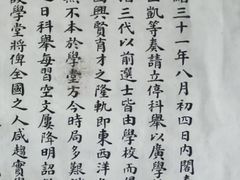 緒三十一年八月初四日內閣
凱等奏請立停科舉以廣學
三代以前選士皆由學校而得
國興賢育才之隆軌即東西洋
無不本於學堂方今時局多艱
日科舉每習空文屢降明詔
設學堂將俾全國之人咸趨實